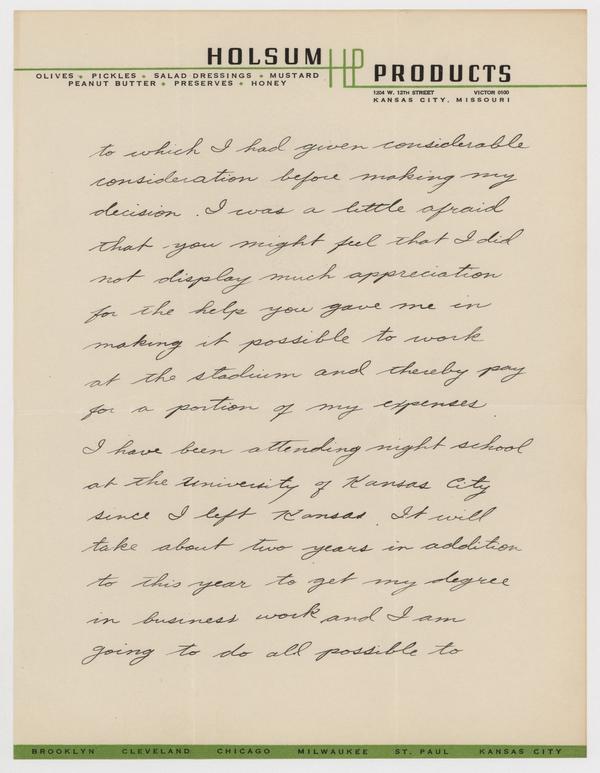 HOLSUM HP PRODUCTS
OLIVES • PICKLES • SALAD DRESSINGS • MUSTARD
PEANUT BUTTER • PRESERVES • HONEY
1204 W. 12TH STREET VICTOR 0100
KANSAS CITY, MISSOURI
to which I had given considerable
consideration before making my
decision. I was a little afraid
that you might feel that I did
not display much appreciation
for the help you gave me in
making it possible to work
at the stadium and thereby pay
for a portion of my expenses.
I have been attending night school
at the University of Kansas City
since I left Kansas. It will
take about two years in addition
to this year to get my degree
in business work and I am
going to do all possible to
BROOKLYN CLEVELAND CHICAGO MILWAUKEE ST. PAUL KANSAS CITY